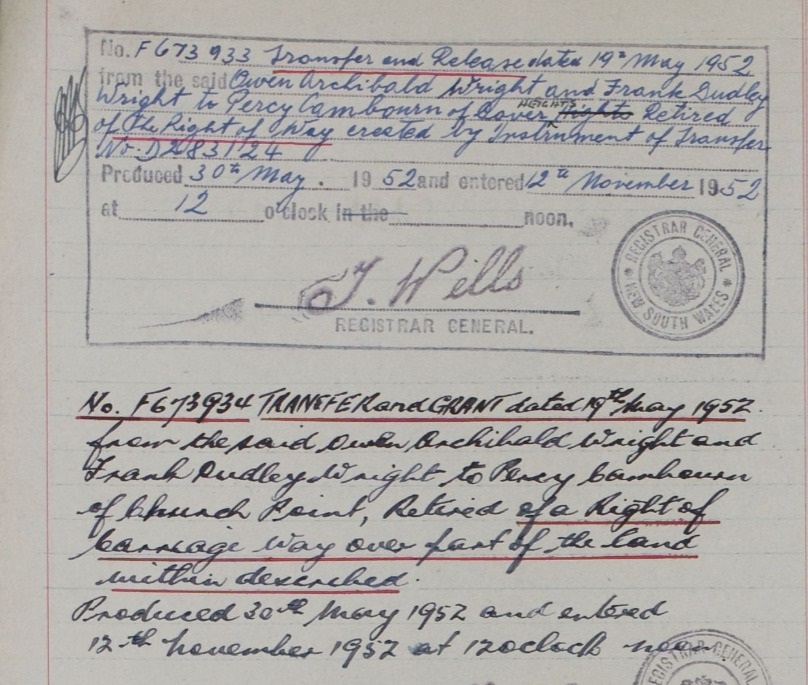 No. F673933 Transfer and Release dated 19th May 1952
from the said Owen Archibald Wright and Frank Dudley
Wright to Percy Cambourn of Dover HEIGHTS Hights Retired
of the Right of Way created by Instrument of Transfer
No. D283124
Produced 30th May. 1952 and entered 12th November 1952
at 12 o'clock in the noon.
T. Wells
REGISTRAR GENERAL.
REGISTRAR GENERAL
NEW SOUTH WALES
No. F673934 TRANSFER and GRANT dated 19th May 1952
from the said Owen Archibald Wright and
Frank Dudley Wright to Percy Cambourn
of Church Point, Retired of a Right of
Carriage Way over part of the land
within described.
Produced 30th May 1952 and entered
12th November 1952 at 12 oclock noon
REGISTRAR GENERAL